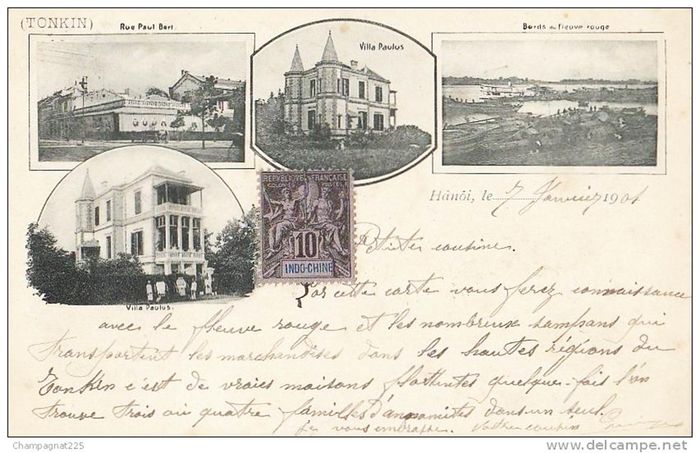 (TONKIN)
Rue Paul Bert.
Villa Paulus
Bords du fleuve rouge
Villa Paulus.
REPUBLIQUE FRANÇAISE
COLONIES POSTES
10
INDO-CHINE
Hànôi, le 7 Janvier 1901
Petites cousines
Par cette carte vous ferez connaissance
avec le fleuve rouge et les nombreux sampans qui
transportent les marchandises dans les hautes régions du
Tonkin c'est de vraies maisons flottantes quelque-fois l'on
trouve trois ou quatre familles d'annamites dans un seul.
Je vous embrasse. Votre cousin
Champagnat225
delcampe.net